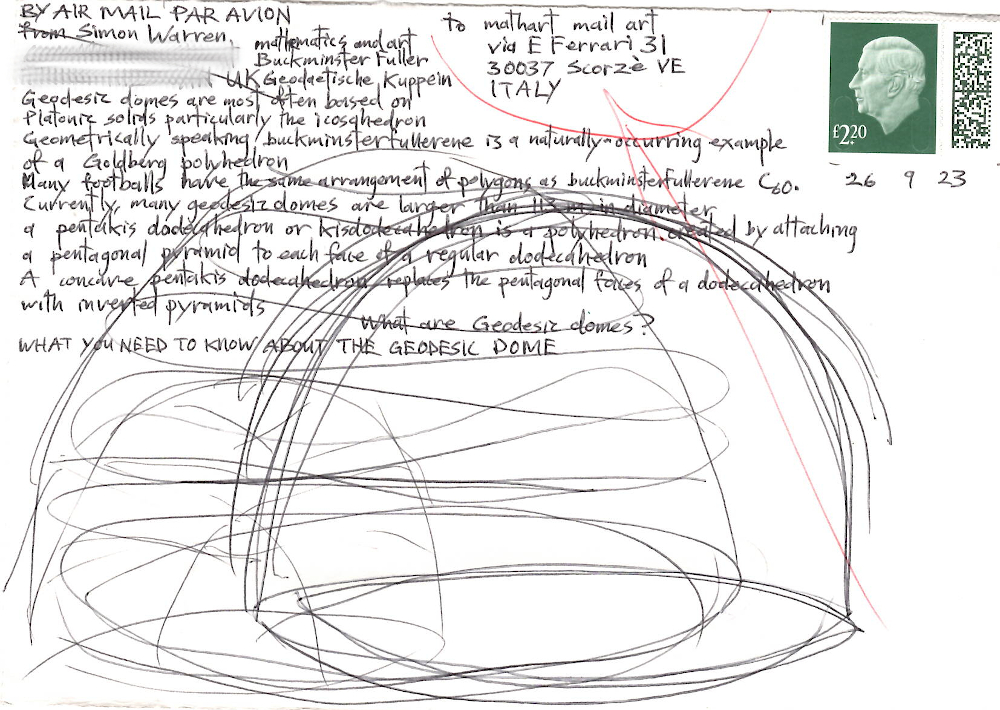 BY AIR MAIL PAR AVION
from Simon Warren
UK
mathematics and art
Buckminster Fuller
Geodaetische Kuppeln
to mathart mail art
via E Ferrari 31
30037 Scorzè VE
ITALY
£2.20
26 9 23
Geodesic domes are most often based on
Platonic solids particularly the icosghedron
Geometrically speaking, buckminsterfullerene is a naturally-occurring example
of a Goldberg polyhedron
Many footballs have the same arrangement of polygons as buckminsterfullerene C60.
Currently, many geodesic domes are larger than in diameter
a pentakis dodecahedron or kisdodecahedron is a polyhedron created by attaching
a pentagonal pyramid to each face of a regular dodecahedron
A concave pentakis dodecahedron replaces the pentagonal faces of a dodecahedron
with inverted pyramids
What are Geodesic domes?
WHAT YOU NEED TO KNOW ABOUT THE GEODESIC DOME